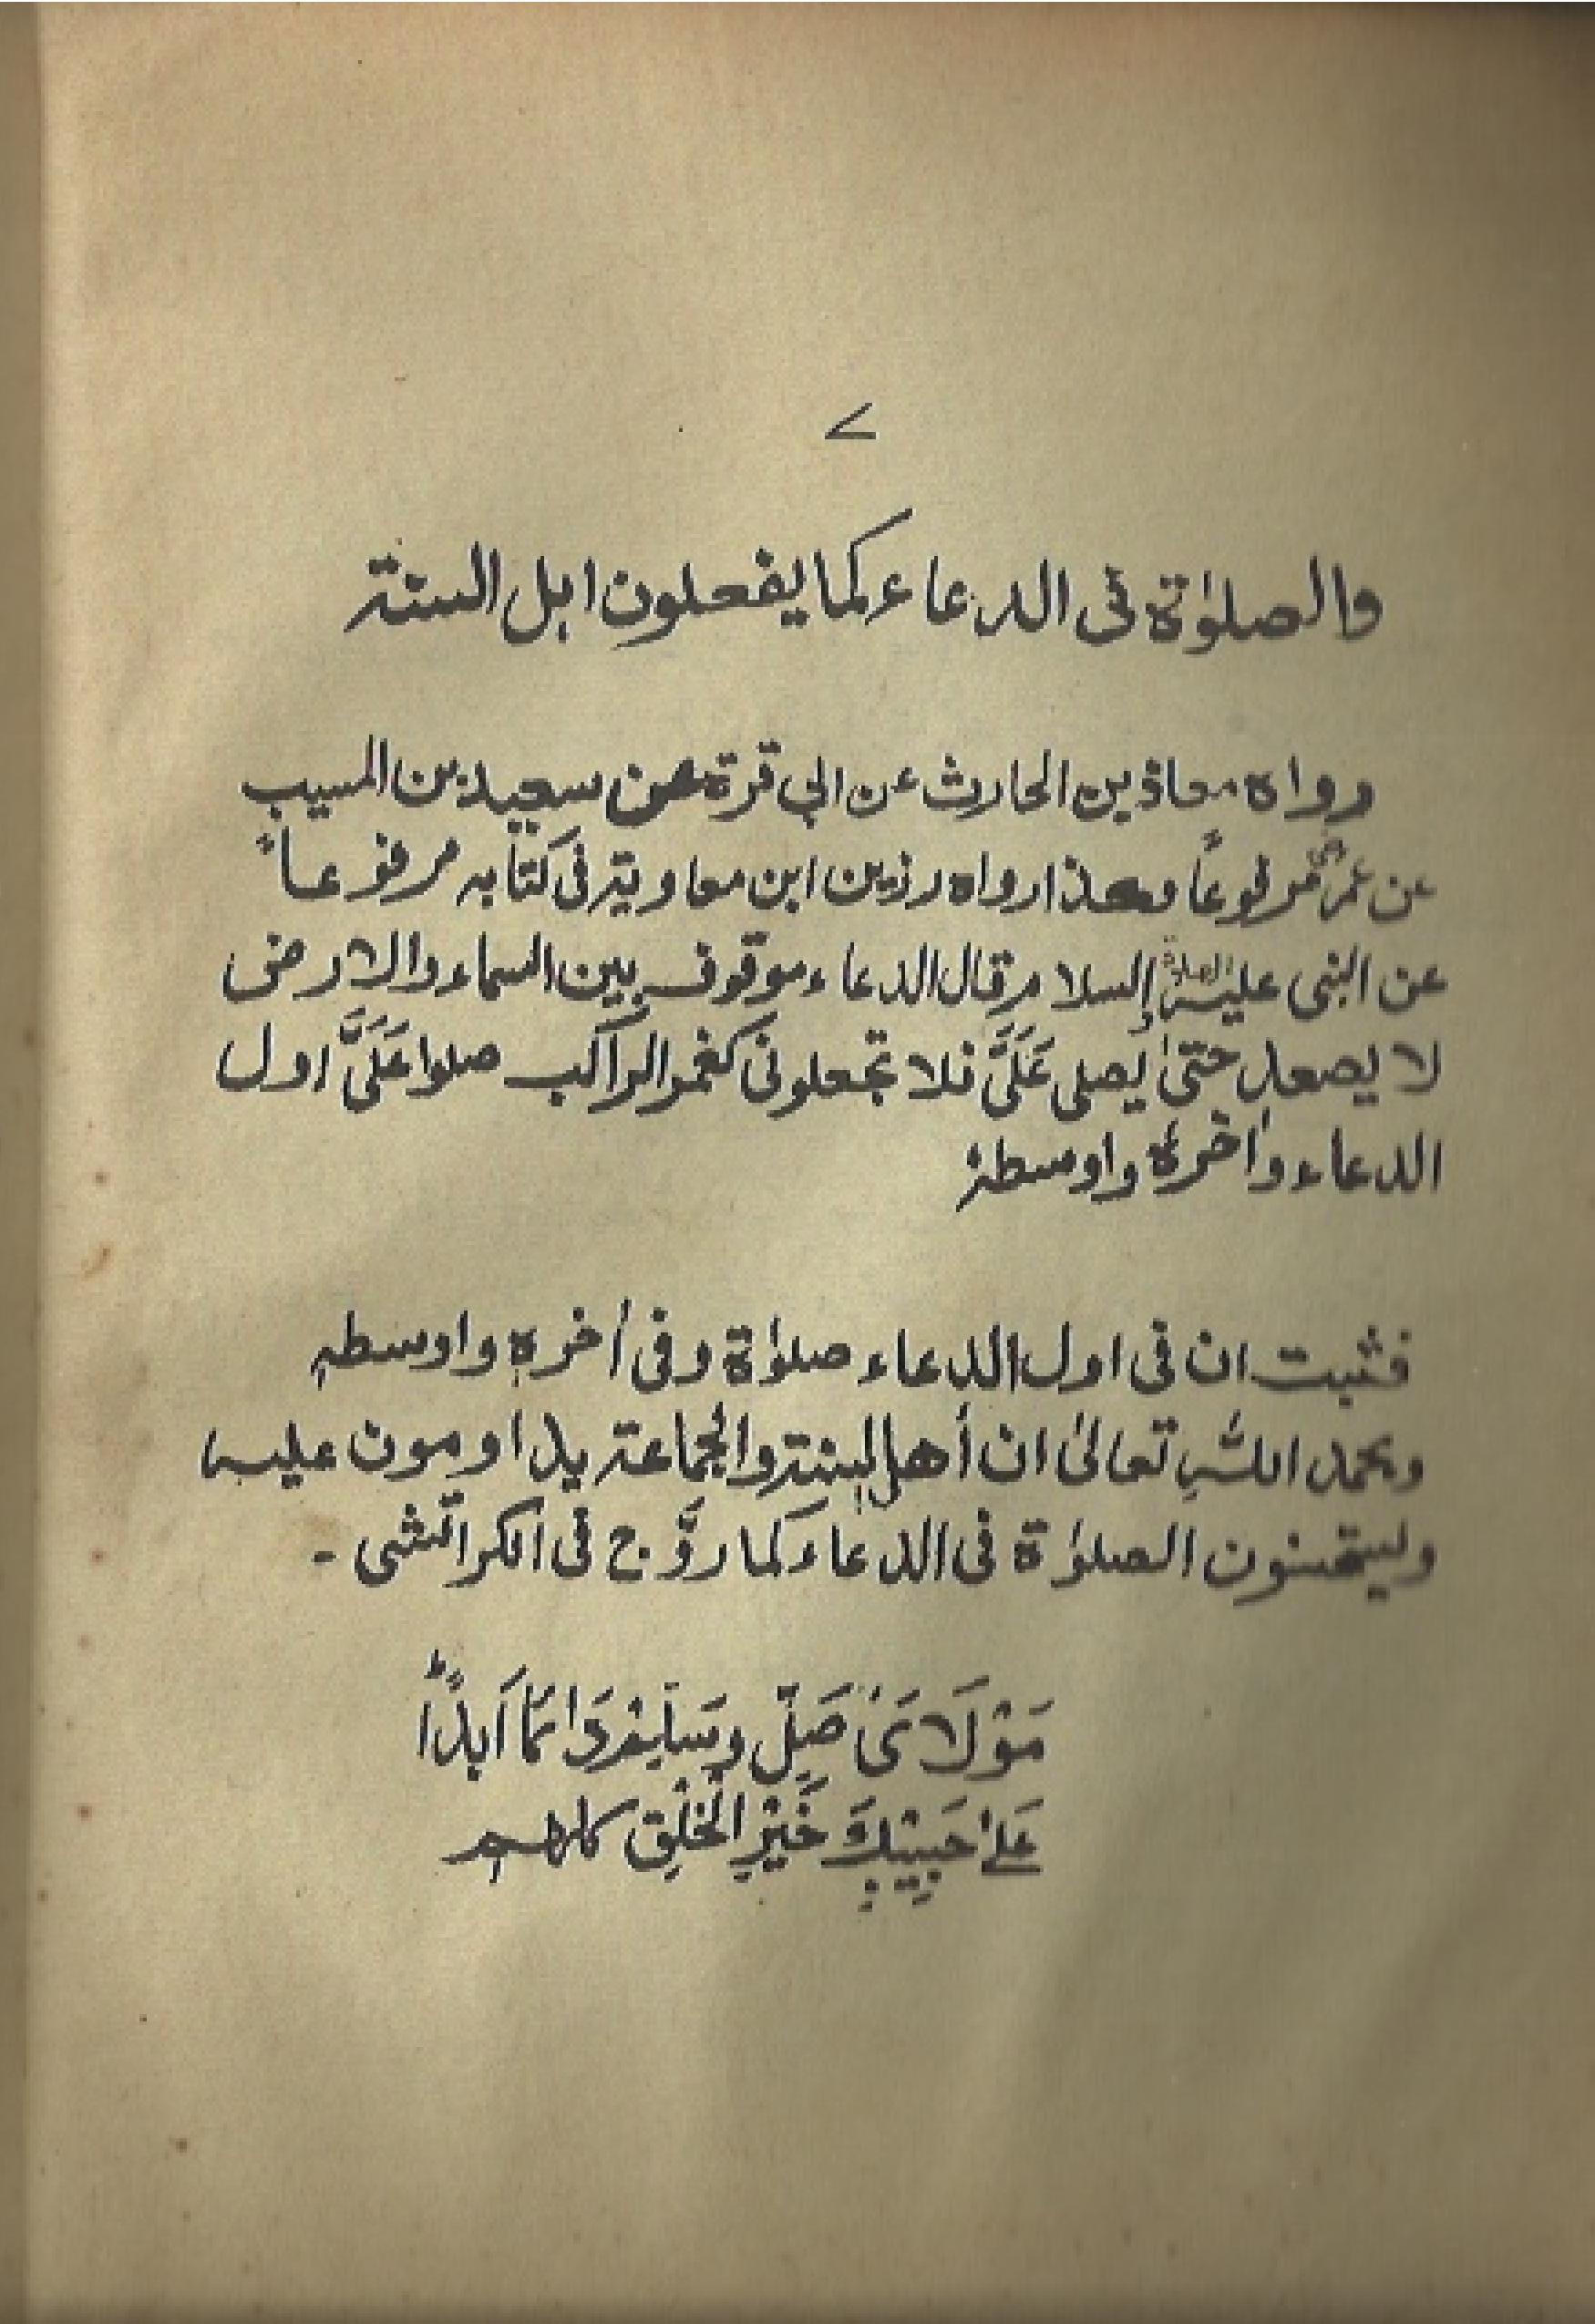 ۷
والصلوٰة فی الدعاء کما یفعلون اہل السنة
رواہ معاذ بن الحارث عن ابی قرة عن سعید بن المسیب
عن عمرؓ مرفوعاً وھذا رواہ رزین ابن معاویة فی کتابہ مرفوعاً
عن النبی علیہ الصلوٰة السلام قال الدعاء موقوف بین السماء والارض
لا یصعد حتیٰ یصلی عَلَیَّ فلا تجعلونی کغمر الراکب صلوا عَلَیَّ اول
الدعاء واٰخرہٗ واوسطہٗ
فثبت ان فی اول الدعاء صلوٰة وفی اٰخرہٖ واوسطہٖ
وبحمد اللہِ تعالیٰ ان أھل السنة والجماعة یداومون علیہ
ولیستحسنون الصلوٰة فی الدعاء کما روَّج فی الکراتشی -
مَوْلَایَ صَلِّ وَسَلِّمْ دَائمًا اَبَدًا
عَلیٰ حَبِیْبِكَ خَیْرِ الْخَلْقِ کلھم